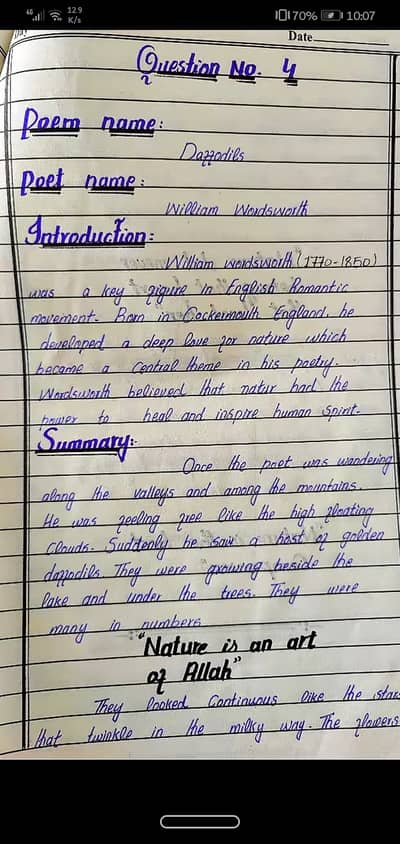 4G 12.9 K/s 70% 10:07
Date
Question No. 4
Poem name:
Daffodils
Poet name:
William Wordsworth
Introduction:
William wordsworth (1770-1850)
was a key figure in English Romantic
movement. Born in Cockermouth England, he
developed a deep love for nature which
became a Central theme in his poetry.
Wordsworth believed that natur had the
power to heal and inspire human Spirit.
Summary:
Once the poet was wandering
along the valleys and among the mountains.
He was feeling free like the high floating
Clouds. Suddenly he saw a host of golden
daffodils. They were growing beside the
lake and under the trees. They were
many in numbers
"Nature is an art
of Allah"
They looked Continuous like the stars
that twinkle in the milky way. The flowers